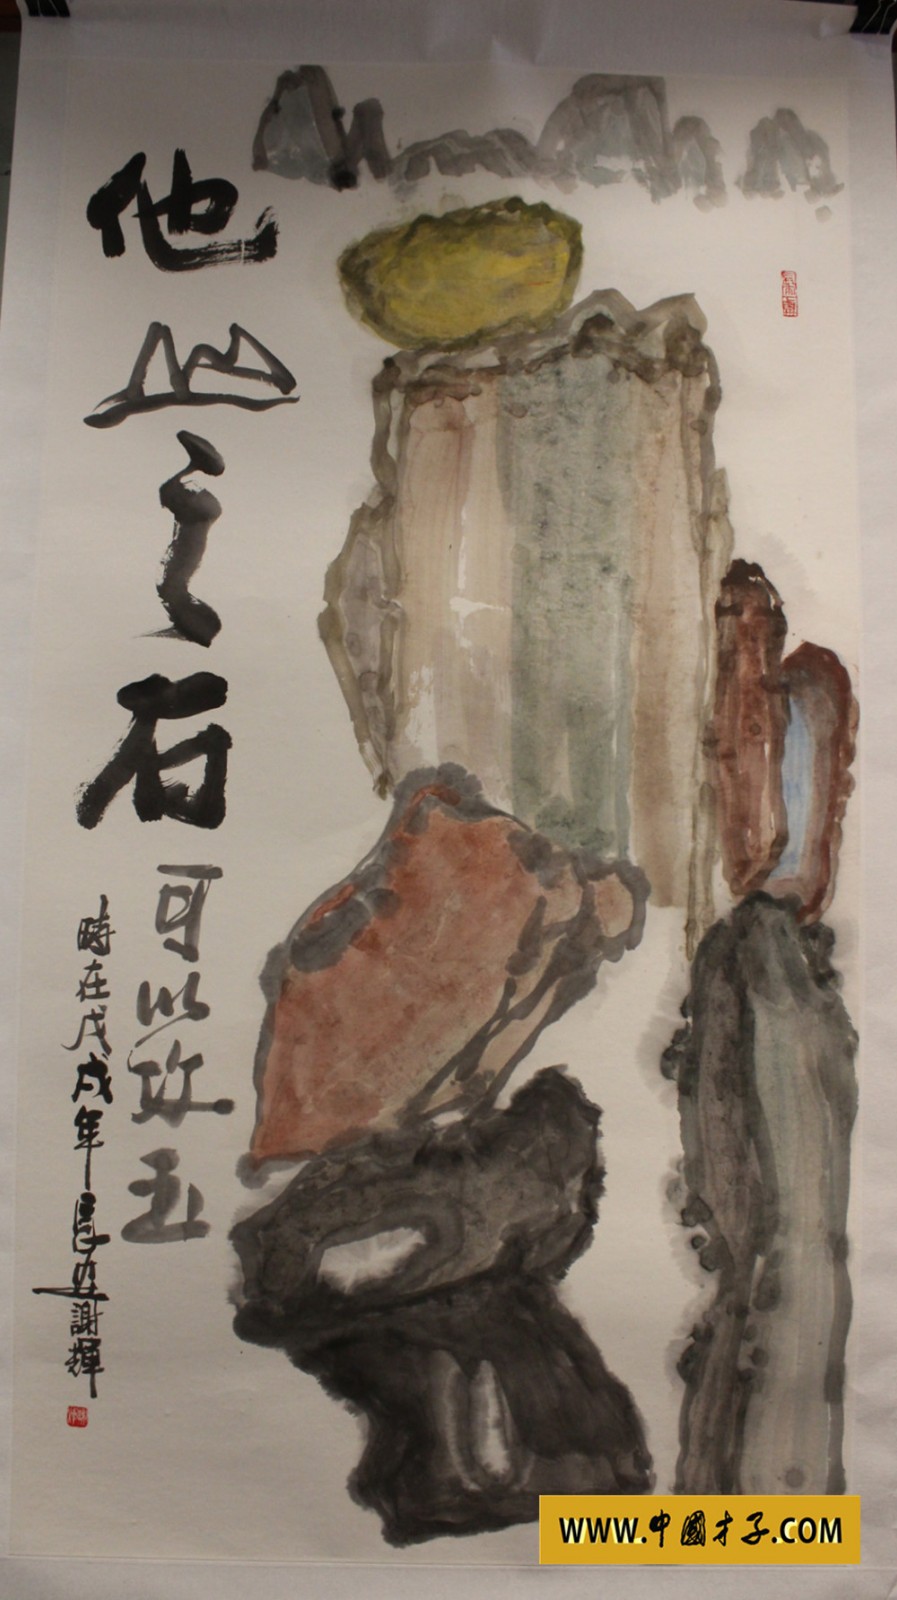 他山之石
可以攻玉
時在戊戌年
謝輝
WWW.中國才子.COM